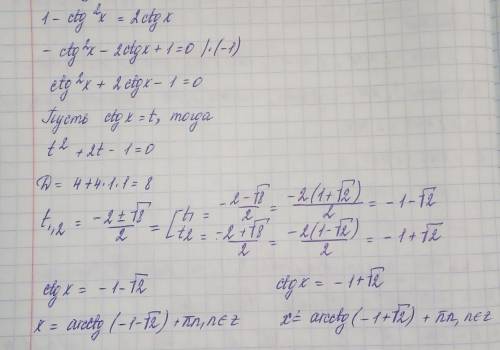 1 - ctg²x = 2ctgx
-ctg²x - 2ctgx + 1 = 0 |·(-1)
ctg²x + 2ctgx - 1 = 0
Пусть ctgx = t, тогда
t² + 2t - 1 = 0
D = 4 + 4·1·1 = 8
t₁,₂ = (-2 ± √8)/2 = [t₁ = (-2 - √8)/2 = (-2(1+√2))/2 = -1 - √2
t₂ = (-2 + √8)/2 = (-2(1-√2))/2 = -1 + √2
ctgx = -1 - √2 ctgx = -1 + √2
x = arcctg(-1-√2) + πn, n∈z x = arcctg(-1+√2) + πn, n∈z